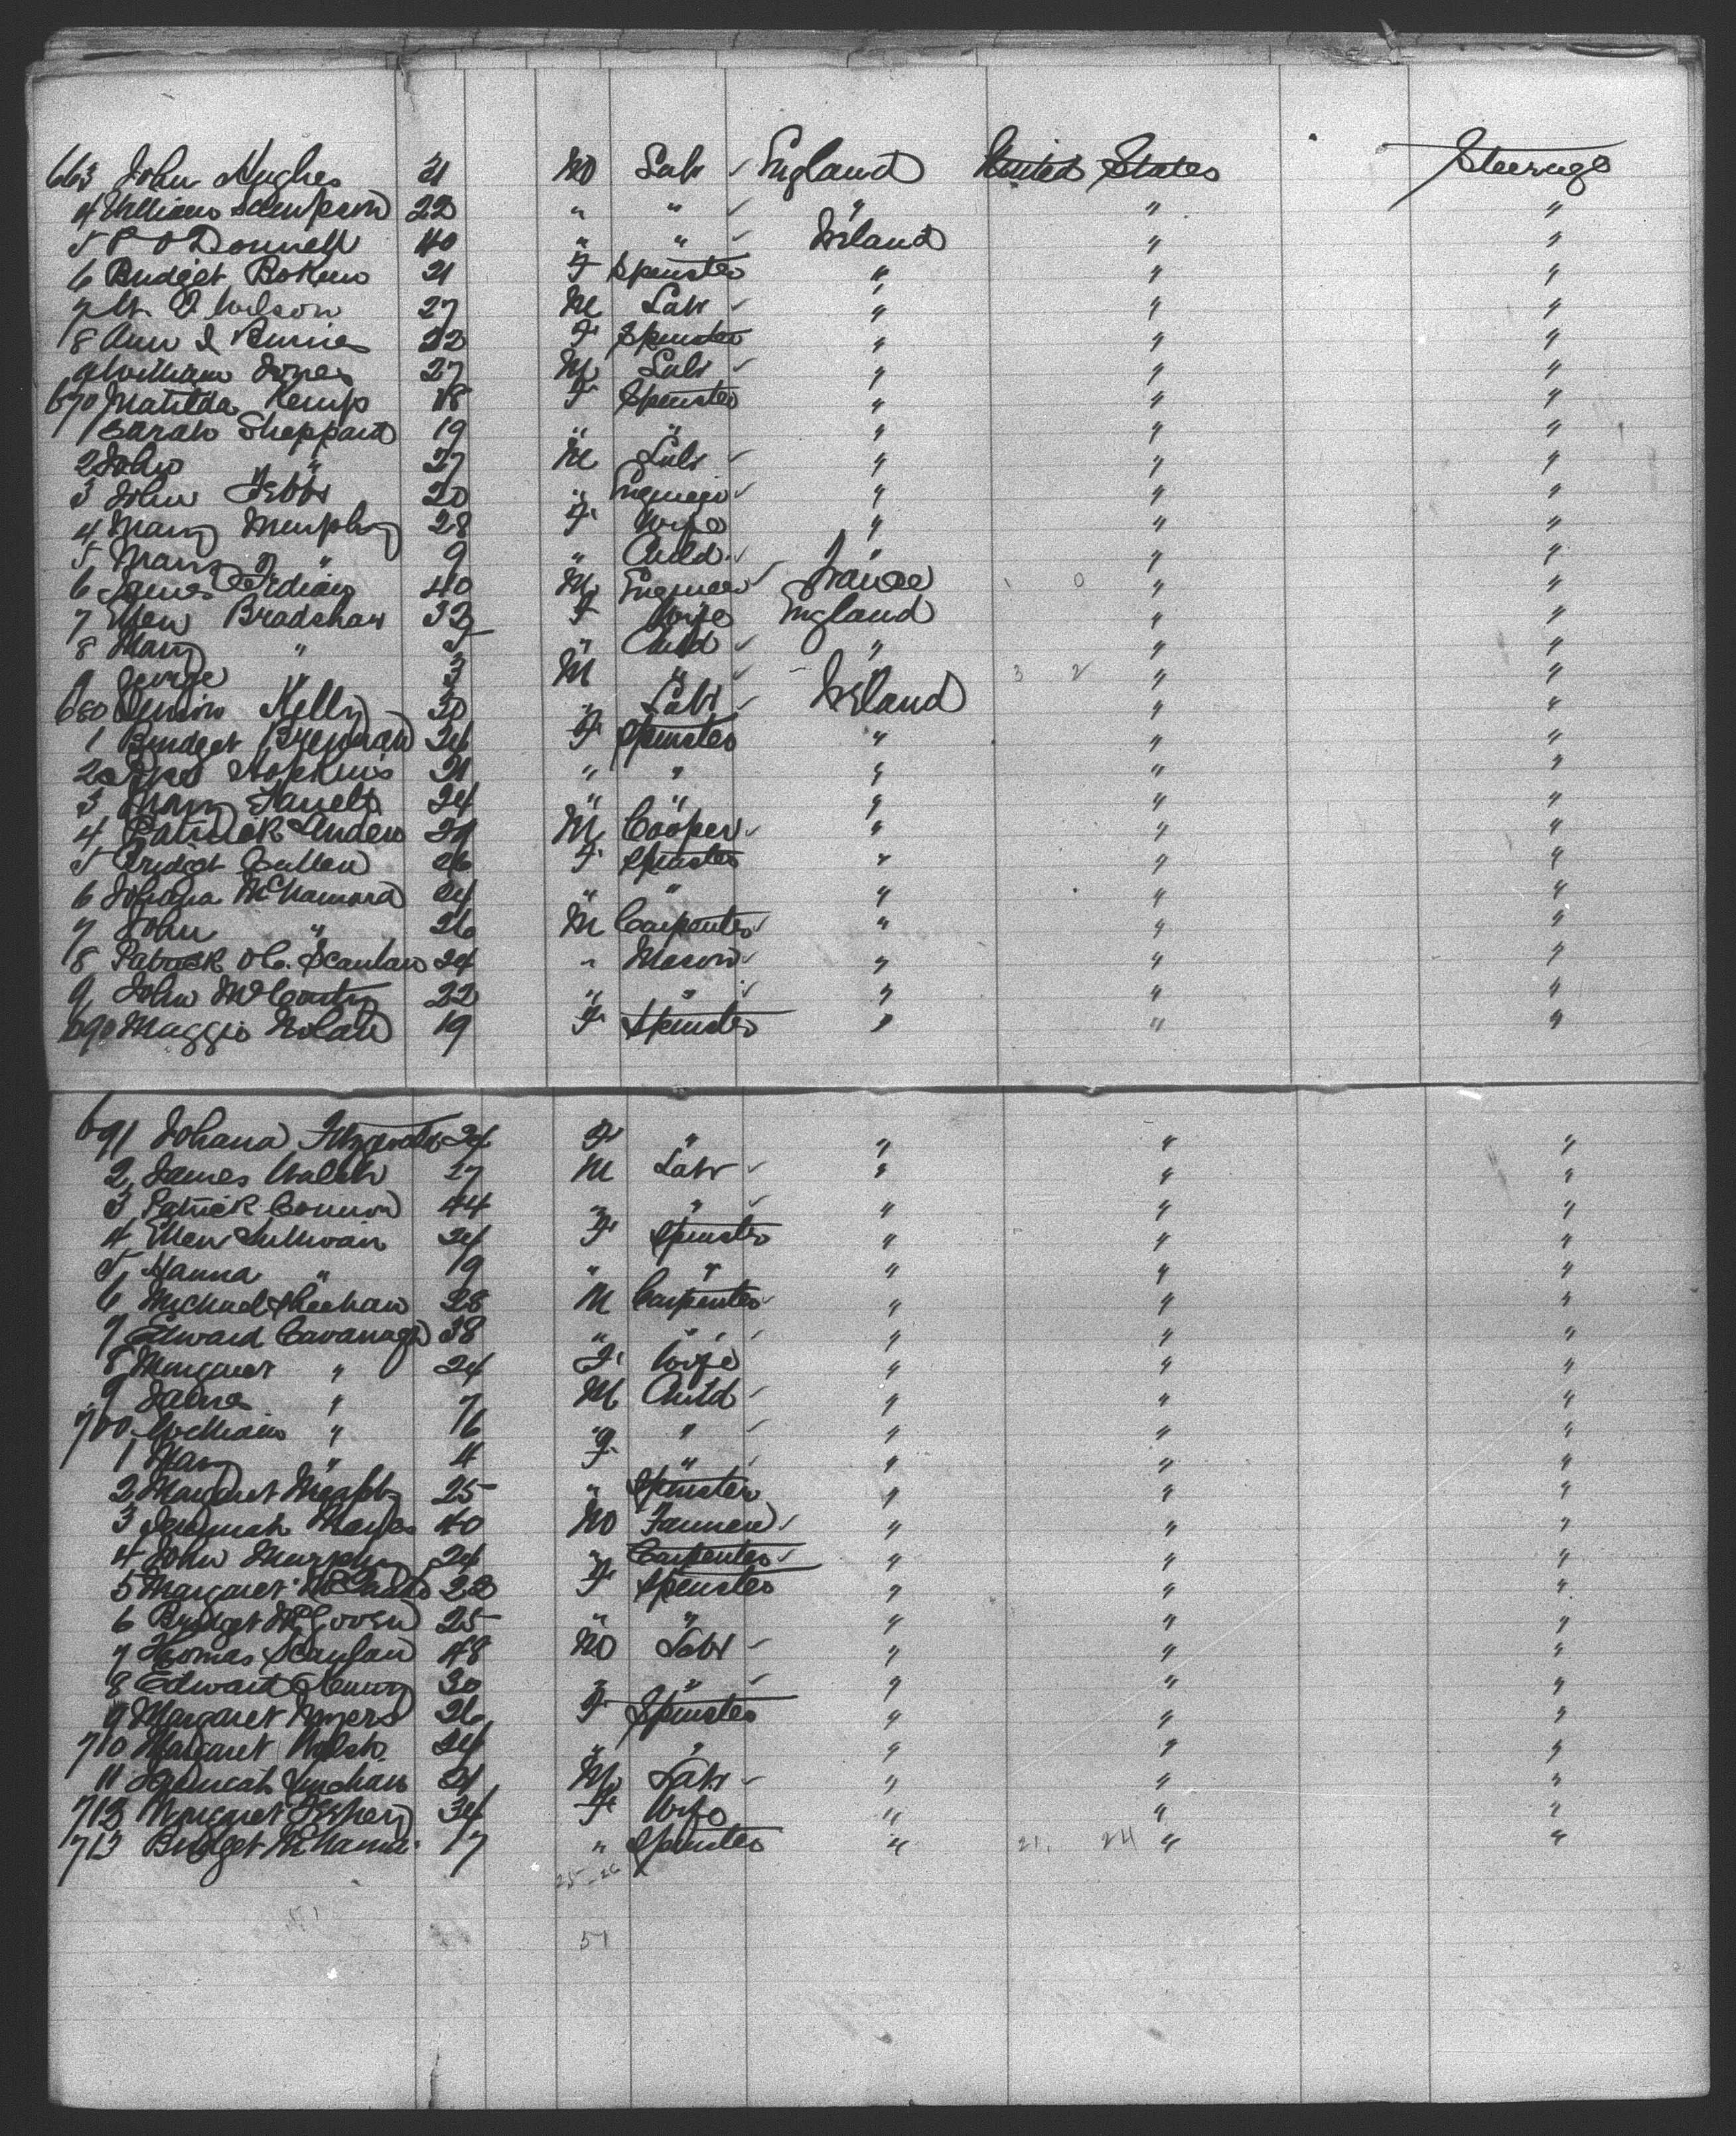 663 John Hughes 21 M Labr ✓ England United States Steerage
4 William Sampson 22 " " ✓ " " "
5 P O'Donnell 40 " " ✓ Ireland " "
6 Bridget 21 F Spinster " " "
7 Wilson 27 M Labr ✓ " " "
8 Ann 22 F Spinster " " "
9 William Jones 27 M Labr ✓ " " "
670 Matilda Kemp 18 F Spinster " " "
1 Sarah Sheppard 19 " " " " "
2 John " 27 M Labr ✓ " " "
3 John 20 " Engineer ✓ " " "
4 Mary Murphy 28 F Wife " " "
5 Mary " 9 " Child ✓ " " "
6 James 40 M Engineer ✓ France 0 " "
7 Ellen Bradshaw 32 F Wife England " "
8 Mary " 5 " Child ✓ " " "
9 George " 3 M " ✓ " 3 2 " "
680 Kelly 30 " Labr ✓ Ireland " "
1 Bridget Brennan 26 F Spinster " " "
2 Hopkins 21 " " " " "
3 Mary 24 " " " " "
4 Patrick 21 M Cooper ✓ " " "
5 Bridget Cullen 26 F Spinster " " "
6 Johana McNamara 24 " " " " "
7 John " 26 M Carpenter ✓ " " "
8 Patrick Scanlan 24 " Mason ✓ " " "
9 John McCarty 22 " " ✓ " " "
690 Maggie Nolan 19 F Spinster " " "
691 Johana Fitzgerald 24 F " " " "
2 James Walsh 27 M Labr ✓ " " "
3 Patrick Connor 44 " " ✓ " " "
4 Ellen Sullivan 24 F Spinster " " "
5 Hanna " 19 " " " " "
6 Michael Sheehan 28 M Carpenter ✓ " " "
7 Edward Cavanagh 38 " " ✓ " " "
8 Margaret " 24 F Wife " " "
9 James " 7 M Child ✓ " " "
700 William " 6 " " ✓ " " "
1 Mary " 4 F " ✓ " " "
2 Margaret 25 " Spinster " " "
3 Jeremiah 40 M Farmer ✓ " " "
4 John Murphy 24 " Carpenter ✓ " " "
5 Margaret 23 F Spinster " " "
6 Bridget McGovern 25 " " " " "
7 Thomas Scanlan 48 M Labr ✓ " " "
8 Edward 30 " " ✓ " " "
9 Margaret Myers 26 F Spinster " " "
710 Margaret Walsh 24 " " " " "
11 Jeremiah 21 M Labr ✓ " " "
712 Margaret 34 F Wife " " "
713 Bridget McNama 17 " Spinster " 21. 24 " "
25-26
51
51